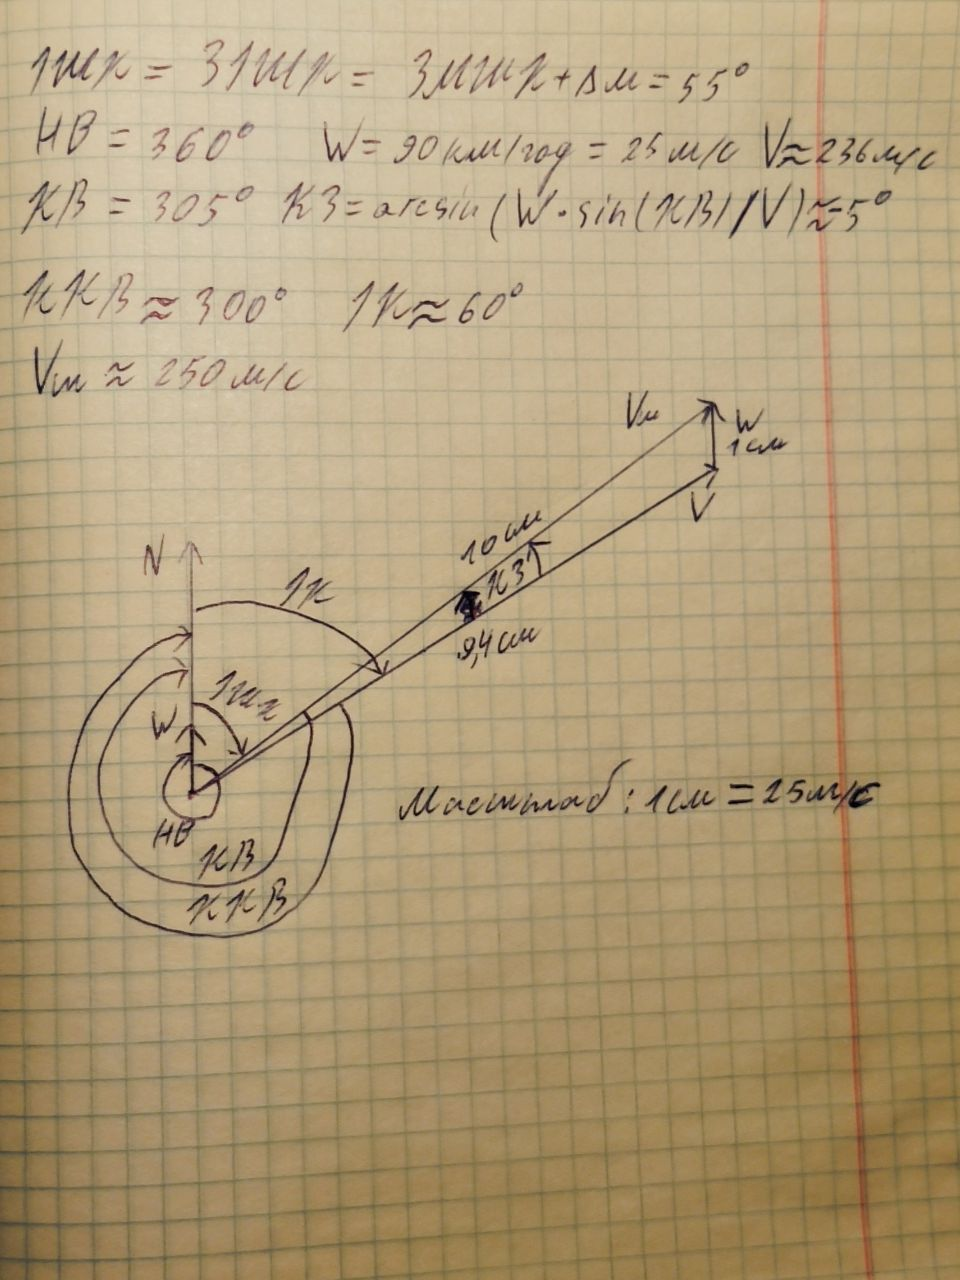 ІШК = ЗІШК = ЗМШК + ΔМ = 55°
НВ = 360° W = 90 км/год = 25 м/с V ≈ 236 м/с
КВ = 305° КЗ = arcsin (W · sin(КВ) / V) ≈ -5°
ККВ ≈ 300° ІК ≈ 60°
Vш ≈ 250 м/с
Vш
W
1 см
V
10 см
КЗ
9,4 см
N
ІК
ІШК
W
НВ
КВ
ККВ
Масштаб: 1 см = 25 м/с